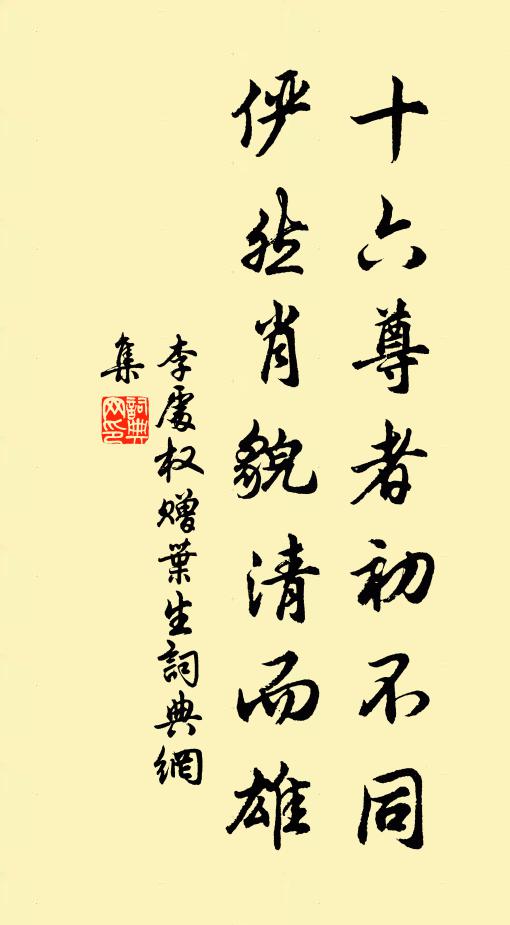 十六尊者初不同
俨然肖貌清而雄
李處权赠葉生詞典網
集
詞典
网印